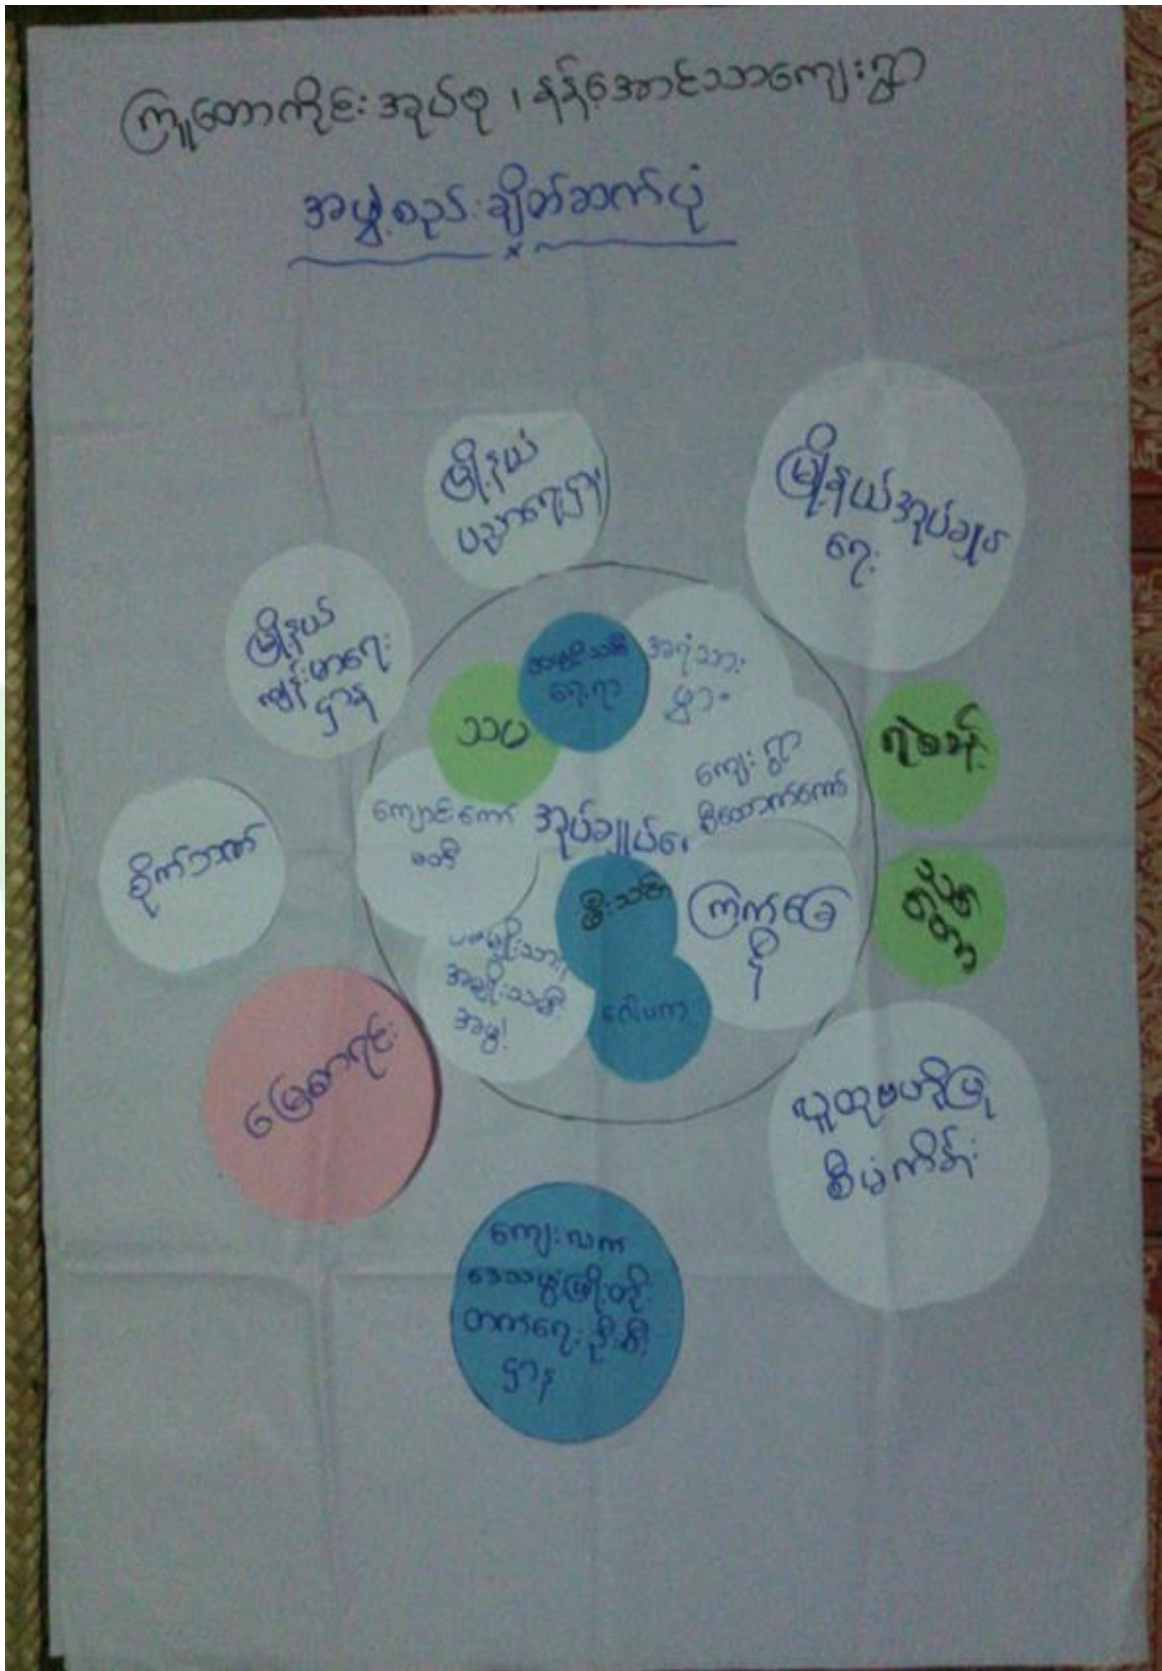 ကြူတောကိုင်းအုပ်စု ၊ နန့်အောင်သာကျေးရွာ
အဖွဲ့စည်းချိတ်ဆက်ပုံ
မြို့နယ်
ပညာရေးဌာန
မြို့နယ်အုပ်ချုပ်
ရေး
မြို့နယ်
ကျန်းမာရေး
ဌာန
အမျိုးသမီး
ရေးရာ
အရံသား
ဖွား
သပ
ရဲစခန်း
ကျေးရွာ
စီထောက်ကော်
ကျောင်းကော်
မတီ
အုပ်ချုပ်ရေး
စိုက်ဘဏ်
မီးသတ်
ကြက်ခြေ
နီ
သစ်တော
အမျိုးသမီး
အဖွဲ့
ဂေါပက
မြေစာရင်း
လူထုဗဟိုပြု
စီမံကိန်း
ကျေးလက်
ဒေသဖွံ့ဖြိုးတိုး
တက်ရေးဦးစီး
ဌာန